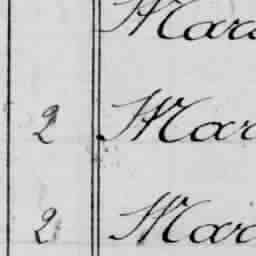 Mar
2 Mar
2 Mar